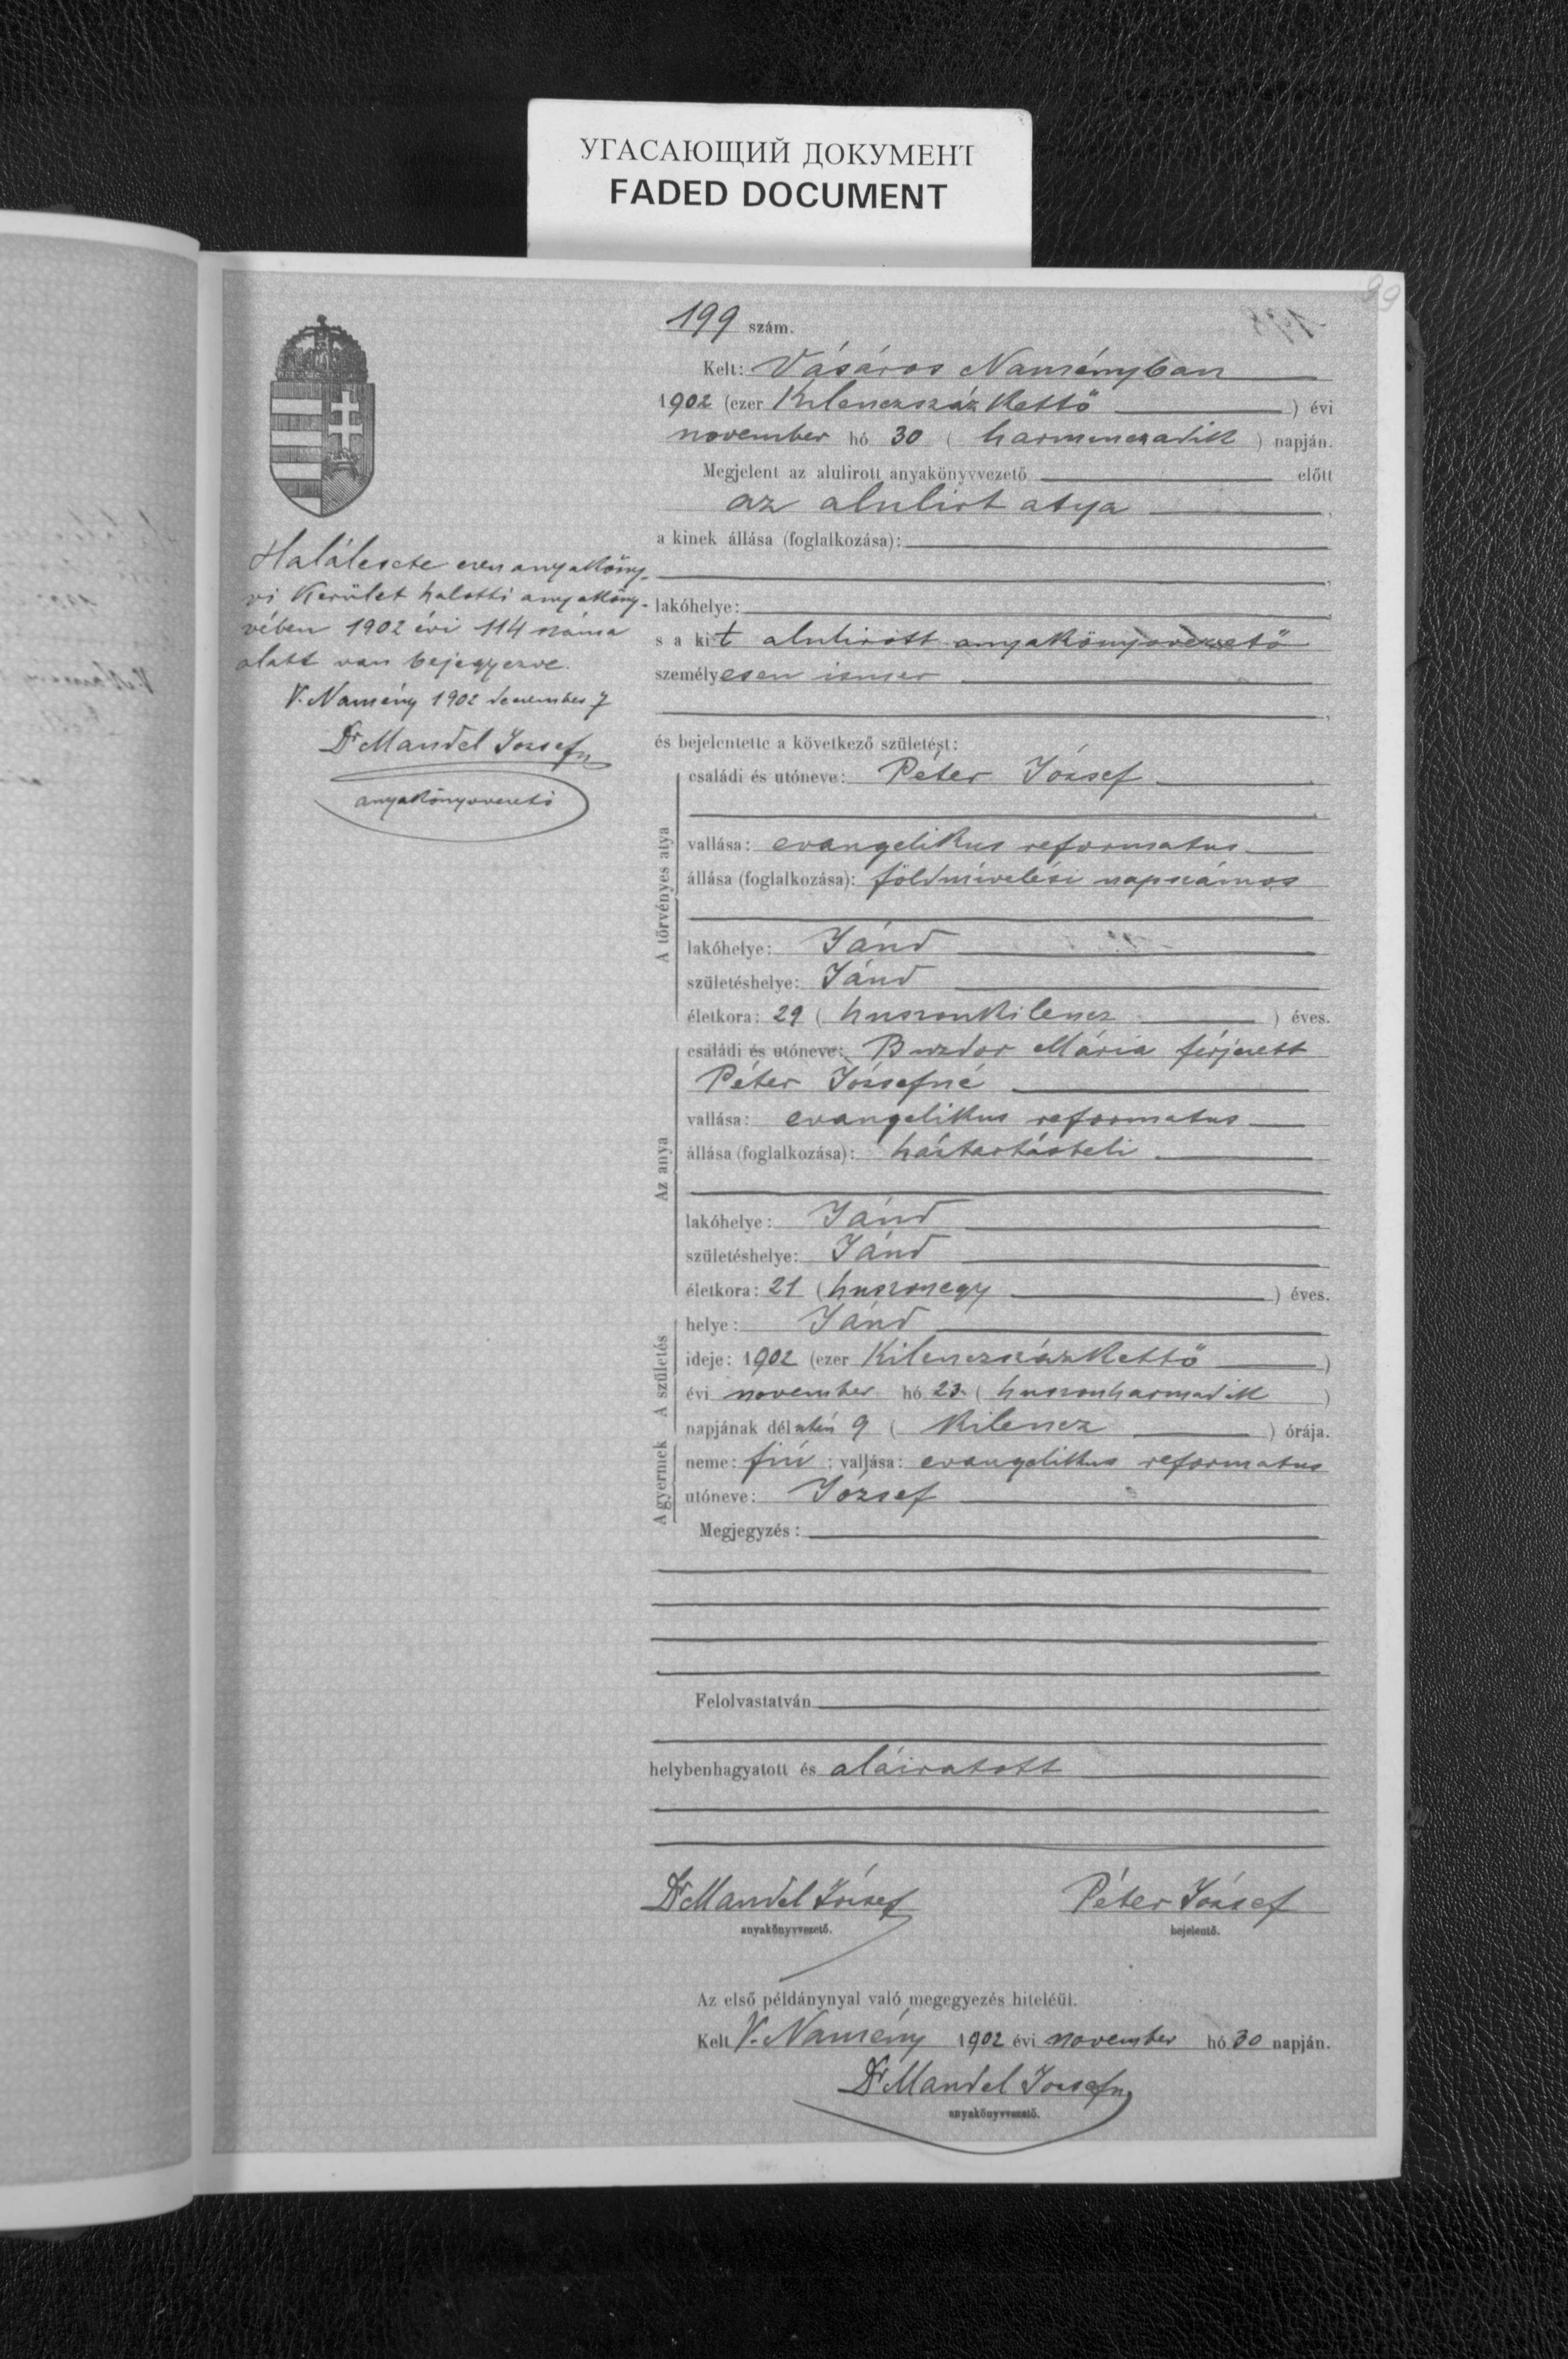 УГАСАЮЩИЙ ДОКУМЕНТ
FADED DOCUMENT
99
199 szám.
Kelt: Vásáros Naményban
1902 (ezer kilenczszáz kettő) évi
november hó 30 (harminczadik) napján.
Megjelent az alulirott anyakönyvvezető előtt
az alulirt atya,
a kinek állása (foglalkozása):
lakóhelye:
s a kit alulirott anyakönyvvezető
személyesen ismer
és bejelentette a következő születést:
A törvényes atya
családi és utóneve: Péter József
vallása: evangelikus reformatus
állása (foglalkozása): földmivelési napszámos
lakóhelye: Jánd
születéshelye: Jánd
életkora: 29 (huszonkilencz) éves.
Az anya
családi és utóneve: Buzdor Mária férjezett
Péter Józsefné
vallása: evangelikus reformatus
állása (foglalkozása): háztartásbeli
lakóhelye: Jánd
születéshelye: Jánd
életkora: 21 (huszonegy) éves.
A születés
helye: Jánd
ideje: 1902 (ezer kilenczszáz kettő)
évi november hó 23 (huszonharmadik)
napjának délután 9 (kilencz) órája.
A gyermek
neme: fiú; vallása: evangelikus reformatus
utóneve: József
Megjegyzés:
Felolvastatván
helybenhagyatott és aláiratott
Dr Mandel József Péter József
anyakönyvvezető. bejelentő.
Az első példánynyal való megegyezés hiteléül.
Kelt V. Namény 1902 évi november hó 30 napján.
Dr Mandel József
anyakönyvvezető.
Halálesete ezen anyaköny-
vi kerület halotti anyaköny-
vében 1902 évi 114 száma
alatt van bejegyezve.
V. Namény 1902 deczember 7
Dr Mandel József
anyakönyvvezető